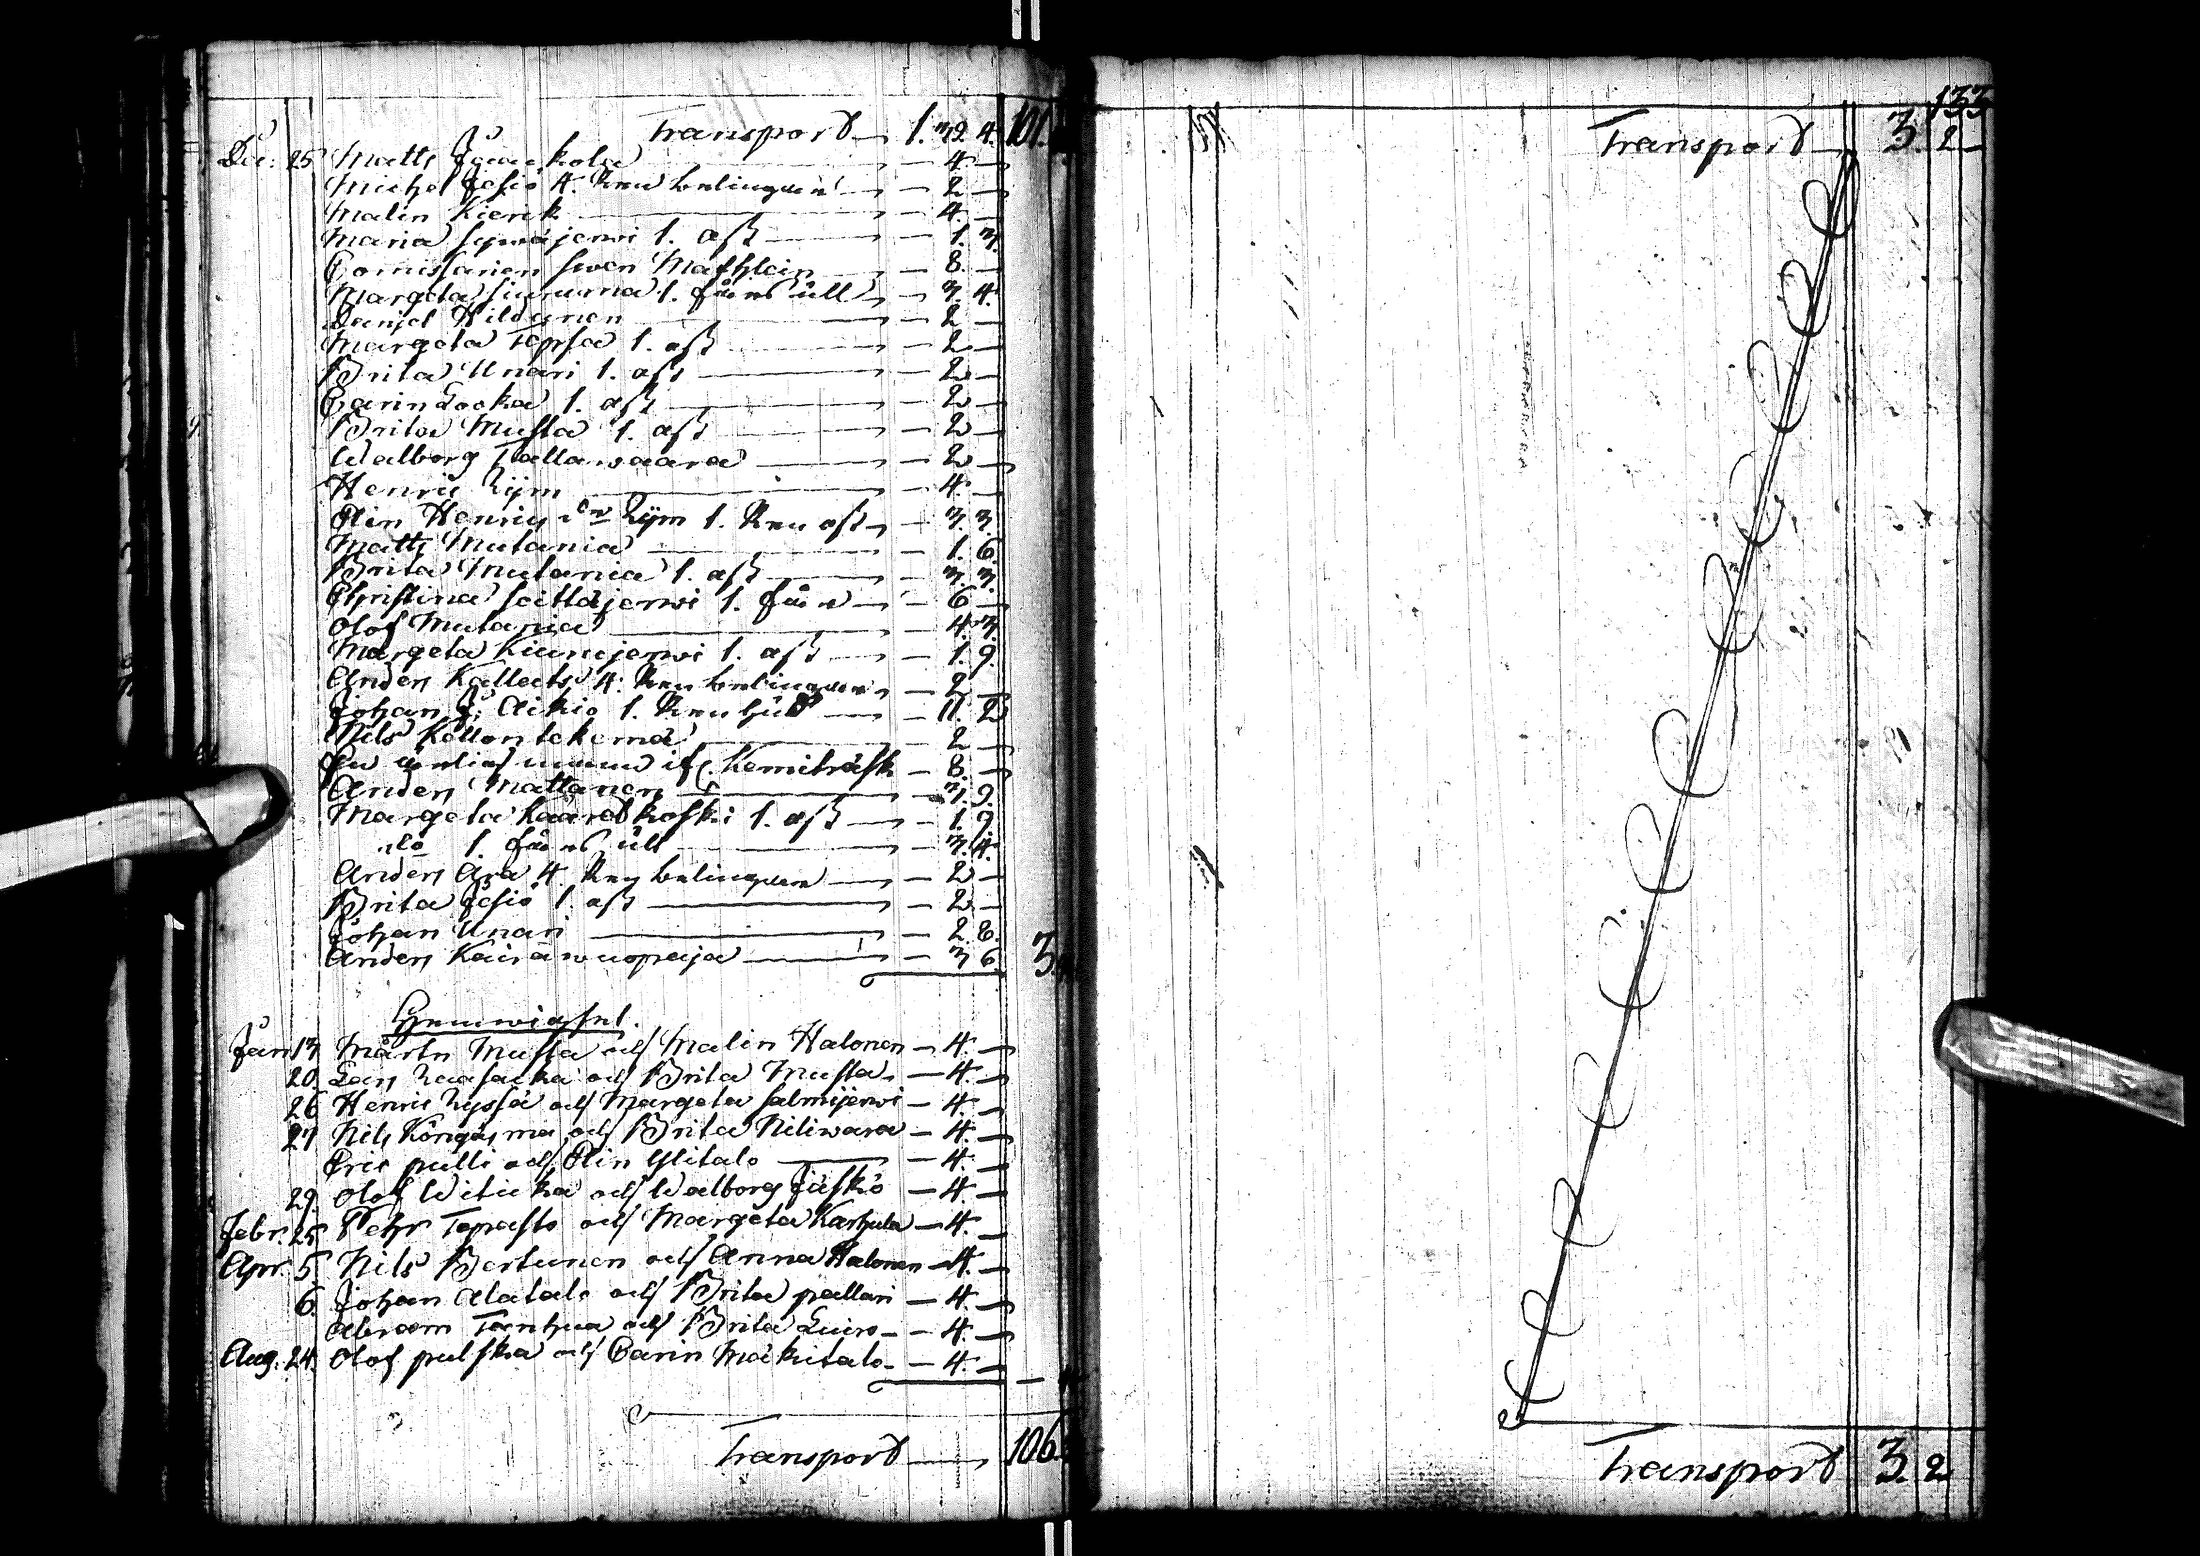 Transport 1. 32. 4. 101.
De: 25 Matts Jaackola 4.
Michel Jesiö 4. Ren belingar 2
Malin Kierik 4.
Maria Sywäjerwi 1. ost 1. 3.
Comissarien Swen Mathlein 8.
Margeta Siuruma 1. fårs ull 3. 4.
Daniel Hildunen 2
Margeta Tepsa 1. ost 2
Brita Unari 1. ost 2
Carin Locka 1. ost 2
Brita Musta 1. ost 2
Walborg Tallawaara 2
Henric Zijm 4.
Elin Henrics dr Zijm 1. Ren ost 3. 3.
Matts Mutania 1. 6.
Brita Mutania 1. ost 3. 3.
Christina Saittajerwi 1. får 6
Olof Mutania 4. 3.
Margeta Kiurujerwi 1. ost 1. 9.
Anders Kallects 4. Ren belingar 2
Johan J: Aikio 1. Ren hud 11. 2
Nils Köllontekemä 2
Kemiträsk 8.
Anders Mattanen 9.
Margeta Kaarekoski 1. ost 1. 9.
do 1. fårs ull 3. 4.
Anders Ara 4. Ren belingar 2
Brita Jesiö 1. ost 2
Johan Unari 2. 8.
Anders Kairawuopaja 3 6. 3.
Jan 13 Mårtn Musta och Malin Halonen 4.
20. Lars och Brita Musta 4.
26 Henric Zyssä och Margeta Salmijerwi 4.
27 Nils Köngäs ma och Brita Niliwara 4.
Eric pulli och Elin Ylitalo 4.
29. Olof Witicka och Walborg Jäskö 4.
Febr. 25 Pehr Topasto och Margeta Karhula 4.
Apr. 5 Nils Bertunen och Anna Halonen 4.
6. Johan Alatalo och Brita pallari 4.
Abraam Tanhua och Brita Luiro 4.
Aug. 24. Olof pulska och Carin Mäkitalo 4.
Transport 106.
133
Transport 3. 2
Transport 3. 2